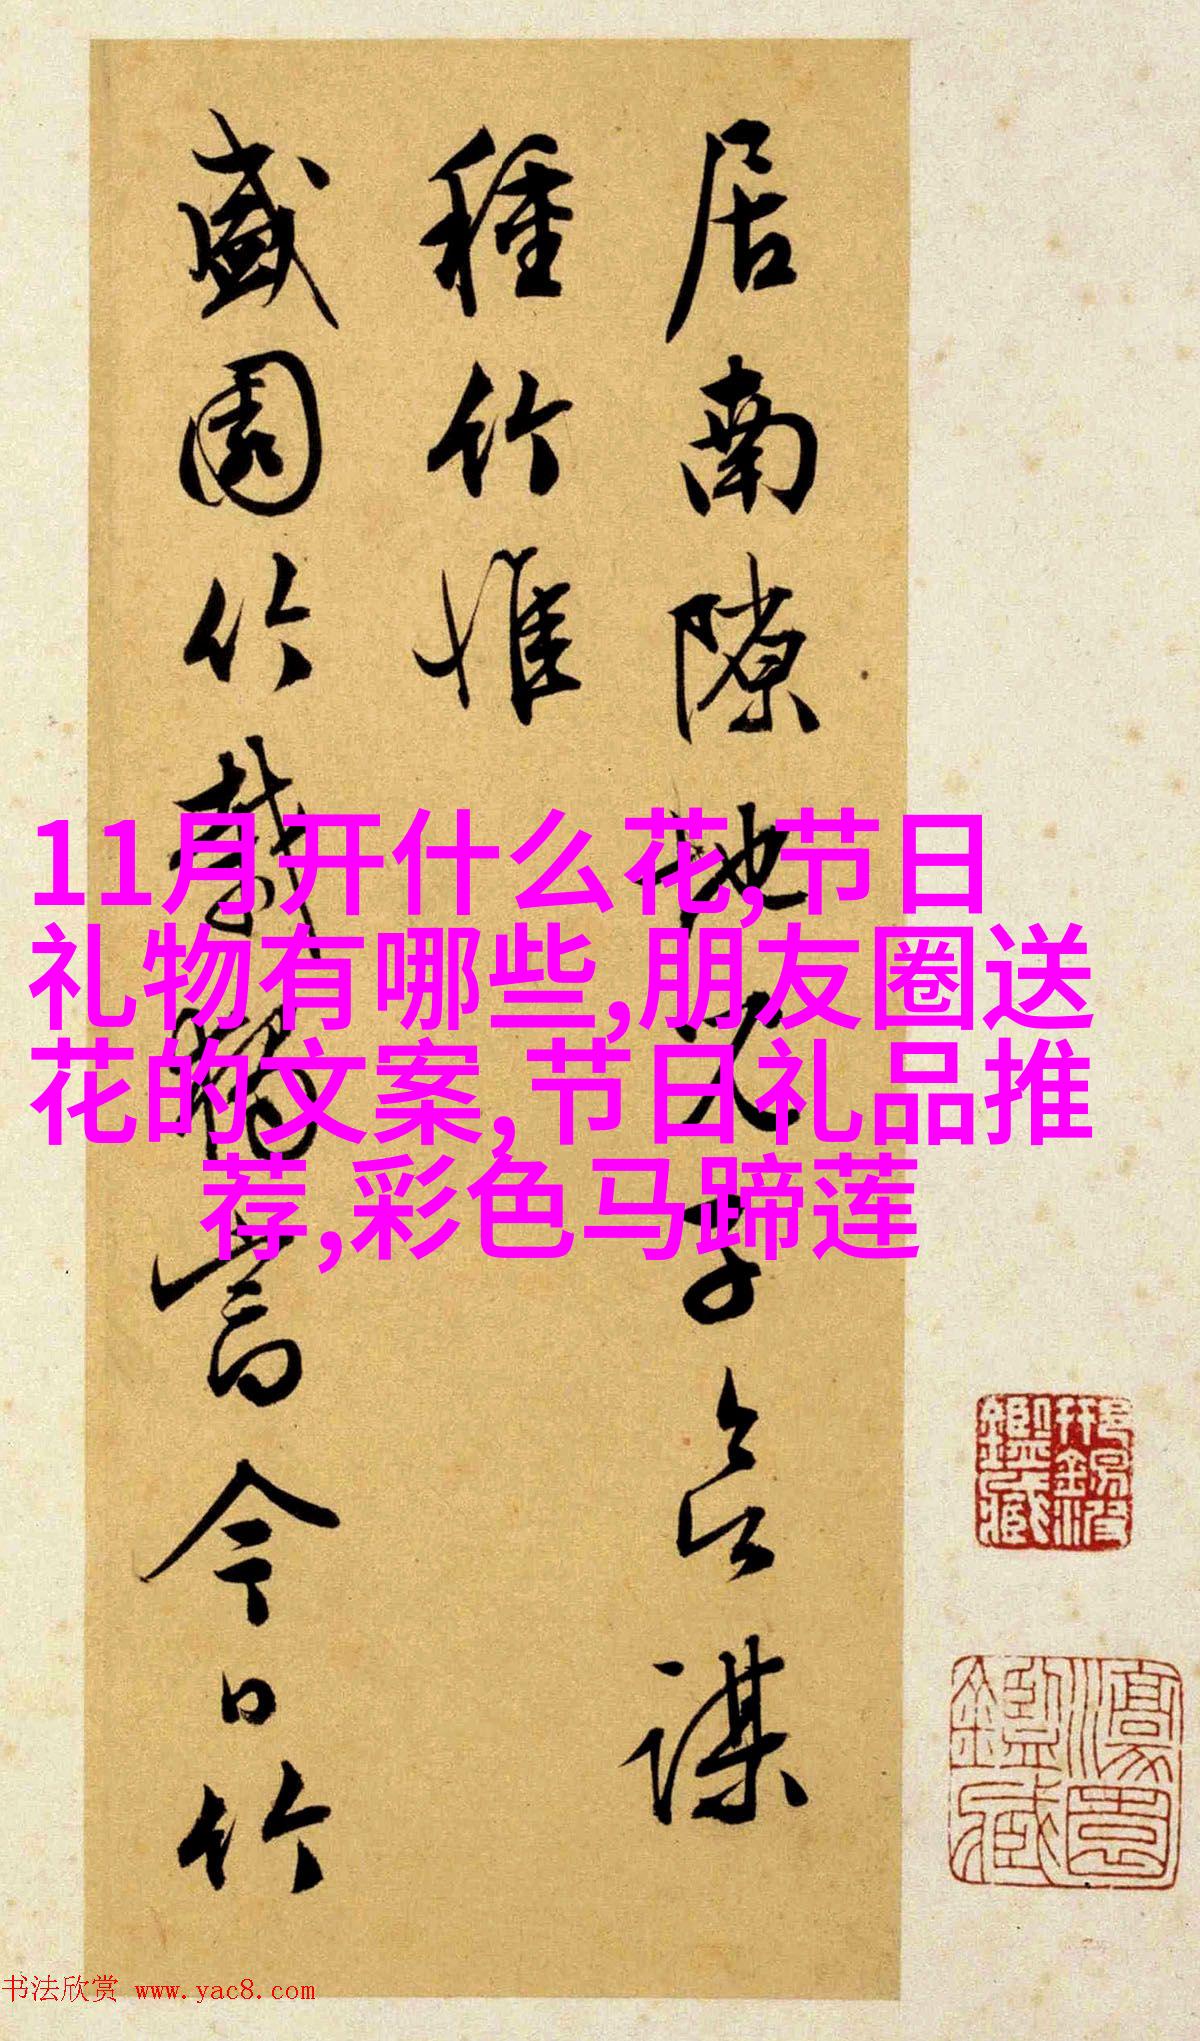 居南隙地兄子云谋
種竹惟
盛園竹栽
言今日竹
11月开什么花,节日
礼物有哪些,朋友圈送
花的文案,节日礼品推
荐,彩色马蹄莲
鑑藏
鑑藏
书法欣赏 www.yac8.com